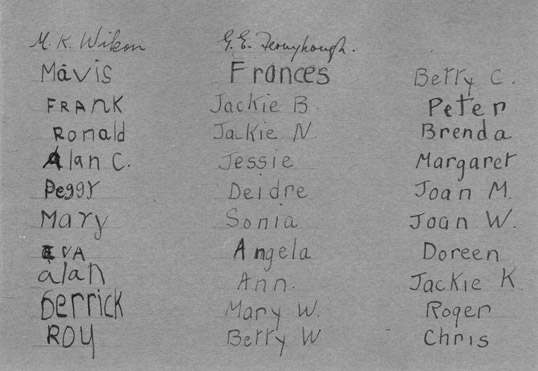 M. K. Wilson
Mavis
FRANK
Ronald
Alan C.
Peggy
Mary
EVA
alan
Derrick
ROY
G. E. Fernyhough.
Frances
Jackie B.
Jackie N.
Jessie
Deidre
Sonia
Angela
Ann.
Mary W.
Betty W
Betty C.
Peter
Brenda
Margaret
Joan M.
Joan W.
Doreen
Jackie K
Roger
Chris